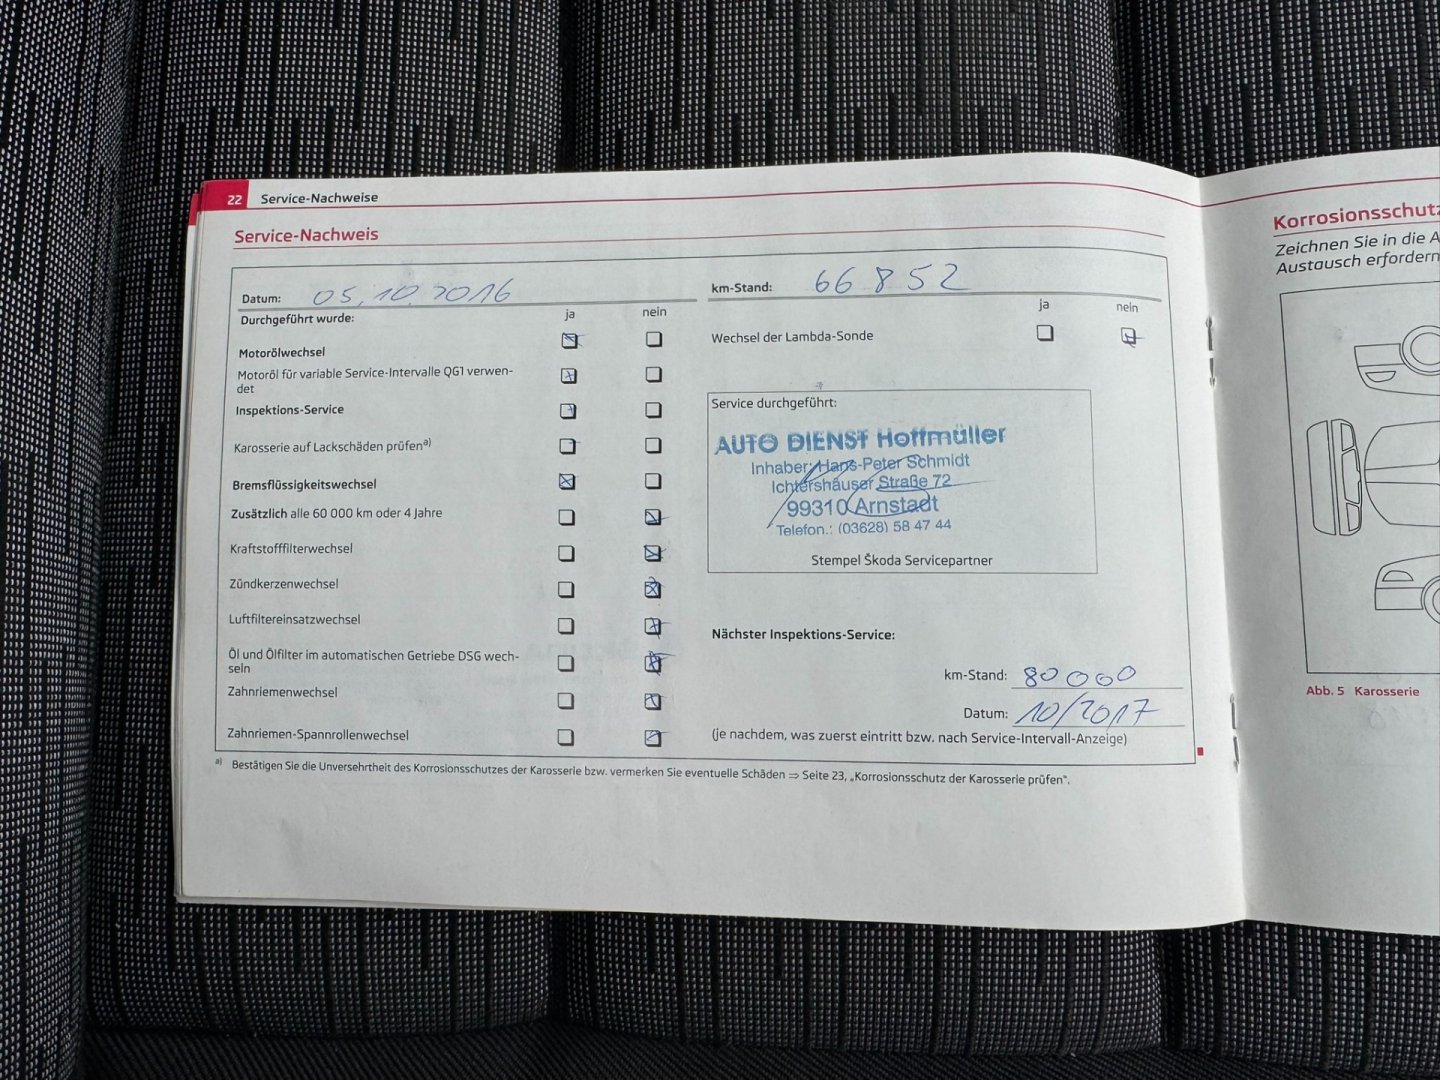 22 Service-Nachweise
Service-Nachweis
Datum: 05.10.2016
km-Stand: 66852
Durchgeführt wurde:
ja nein
ja nein
Motorölwechsel
Motoröl für variable Service-Intervalle QG1 verwen-
det
Inspektions-Service
Karosserie auf Lackschäden prüfen a)
Bremsflüssigkeitswechsel
Zusätzlich alle 60 000 km oder 4 Jahre
Kraftstofffilterwechsel
Zündkerzenwechsel
Luftfiltereinsatzwechsel
Öl und Ölfilter im automatischen Getriebe DSG wech-
seln
Zahnriemenwechsel
Zahnriemen-Spannrollenwechsel
Wechsel der Lambda-Sonde
Service durchgeführt:
AUTO DIENST Hoffmüller
Inhaber: Hans-Peter Schmidt
Ichtershäuser Straße 72
99310 Arnstadt
Telefon.: (03628) 58 47 44
Stempel Škoda Servicepartner
Nächster Inspektions-Service:
km-Stand: 80000
Datum: 10/2017
(je nachdem, was zuerst eintritt bzw. nach Service-Intervall-Anzeige)
a) Bestätigen Sie die Unversehrtheit des Korrosionsschutzes der Karosserie bzw. vermerken Sie eventuelle Schäden ⇒ Seite 23, „Korrosionsschutz der Karosserie prüfen“.
Korrosionsschutz
Zeichnen Sie in die A
Austausch erfordern
Abb. 5 Karosserie